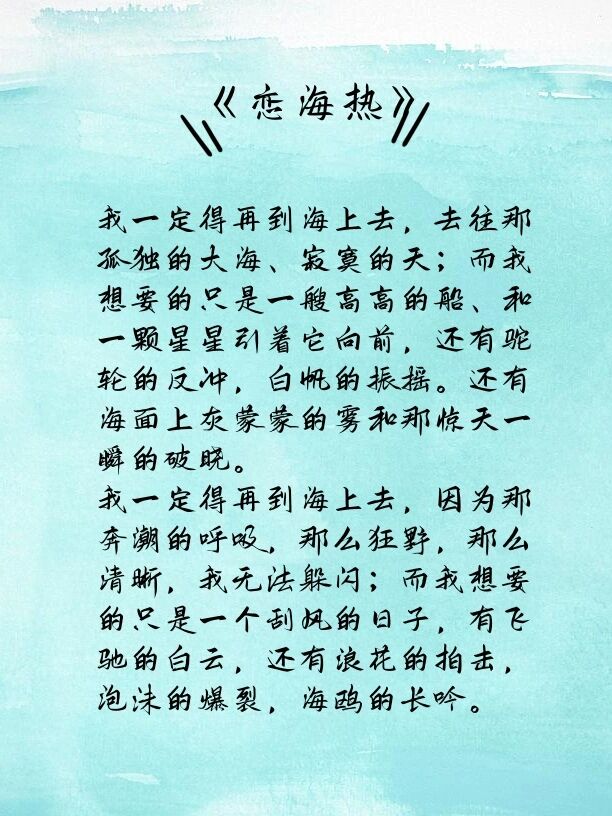 《恋海热》
我一定得再到海上去，去往那
孤独的大海、寂寞的天；而我
想要的只是一艘高高的船、和
一颗星星引着它向前，还有驼
轮的反冲，白帆的振摇。还有
海面上灰蒙蒙的雾和那惊天一
瞬的破晓。
我一定得再到海上去，因为那
奔潮的呼吸，那么狂野，那么
清晰，我无法躲闪；而我想要
的只是一个刮风的日子，有飞
驰的白云，还有浪花的拍击，
泡沫的爆裂，海鸥的长吟。